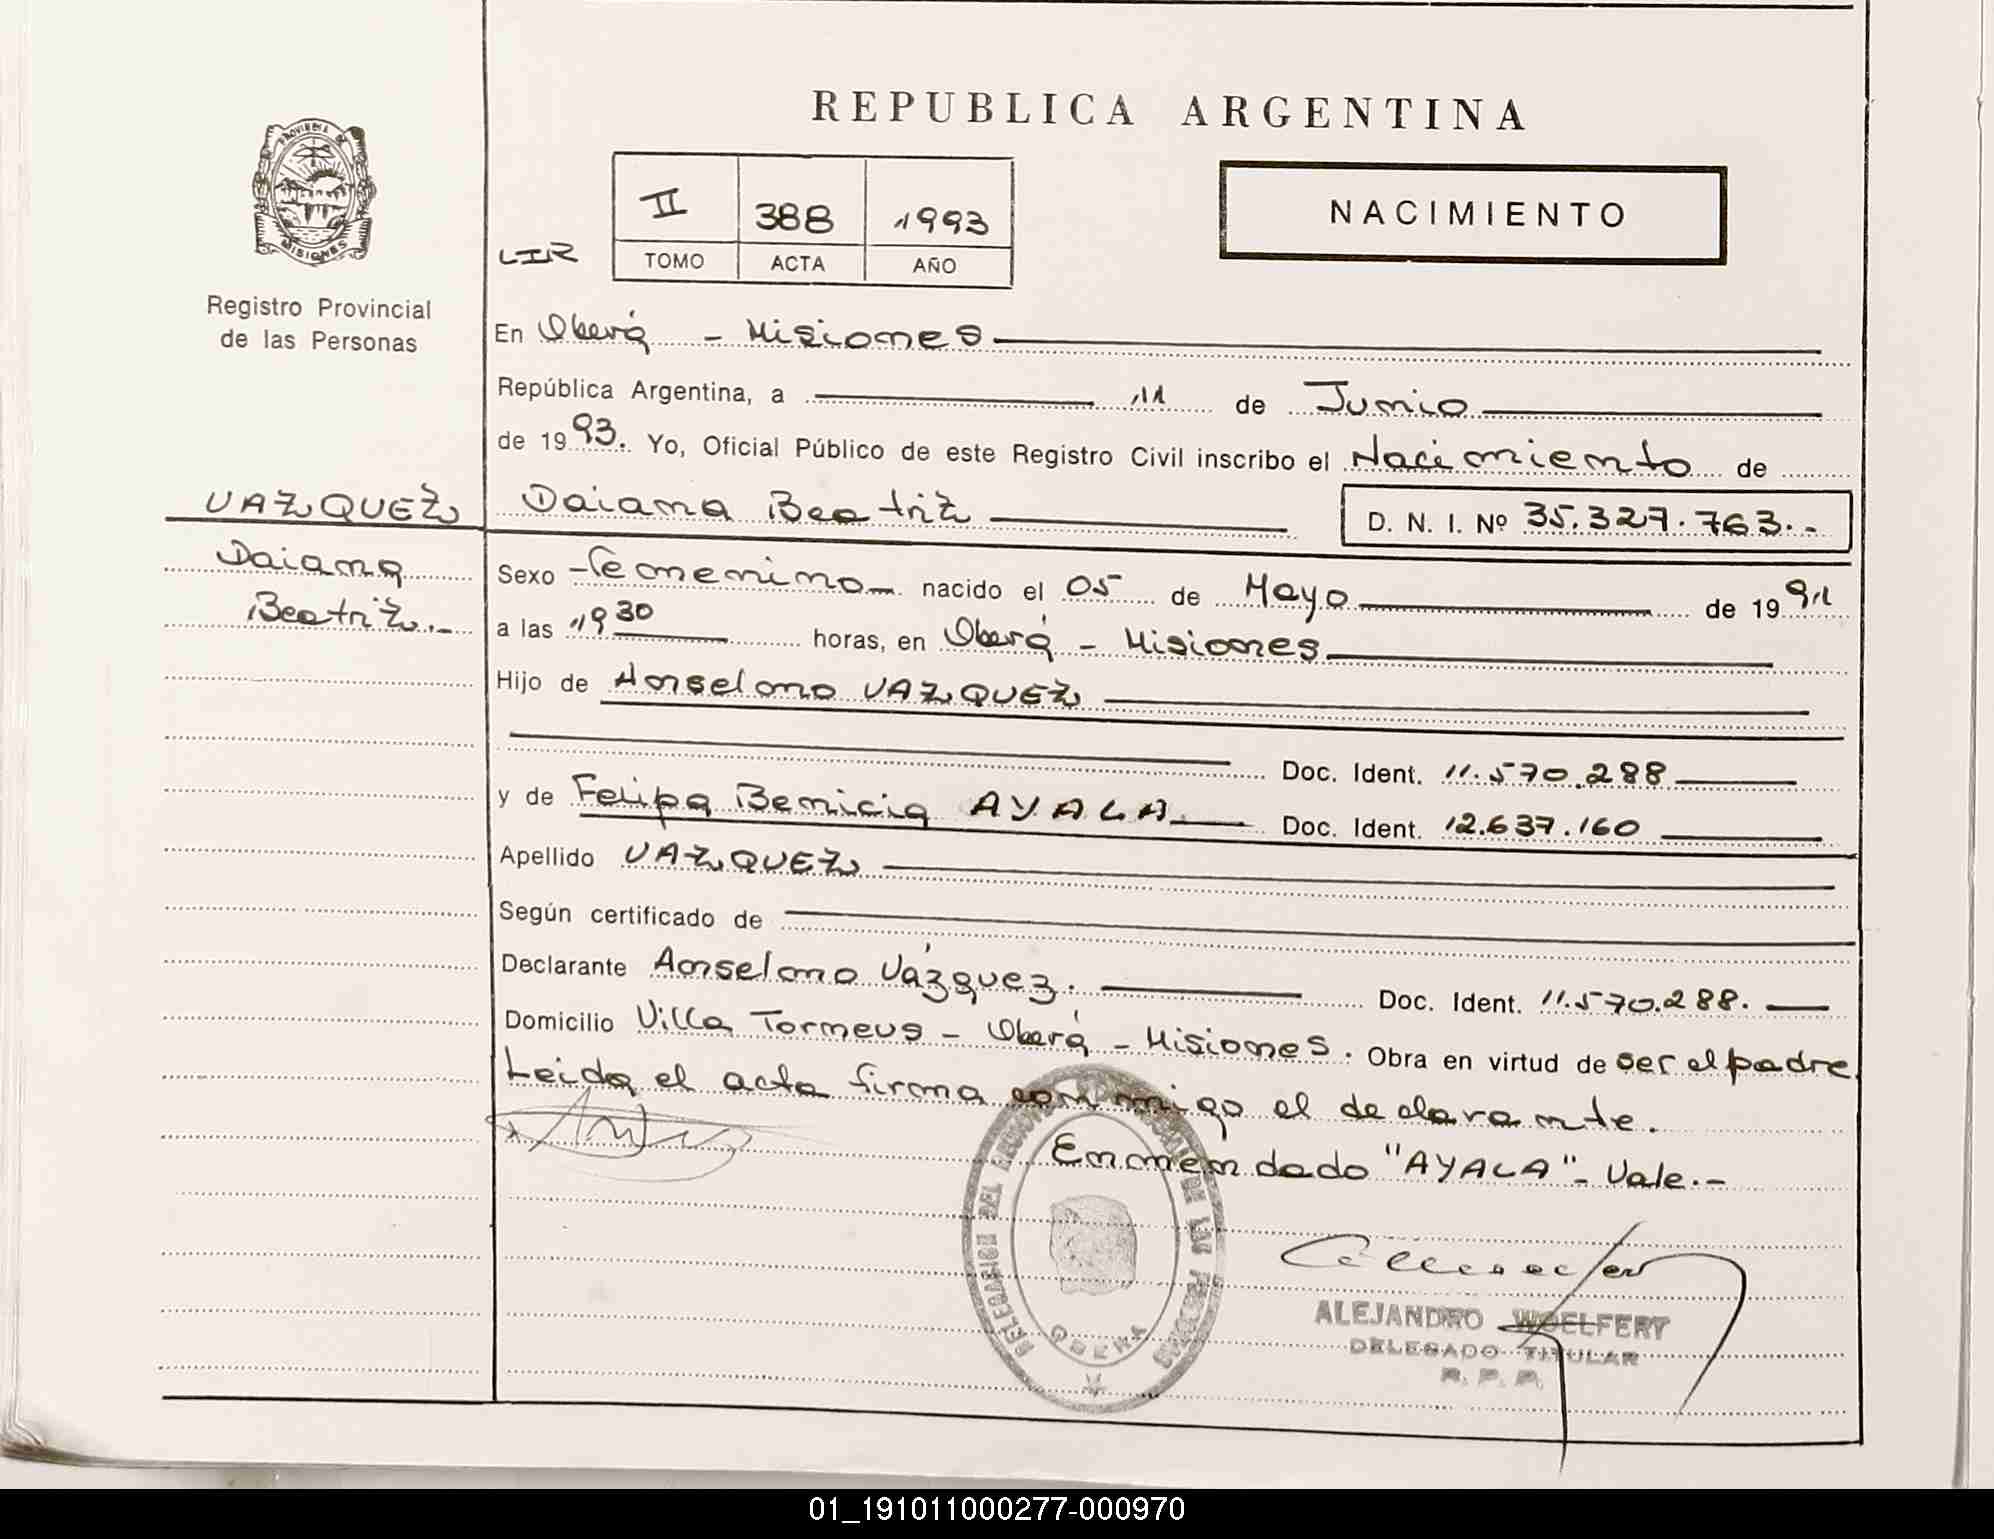 REPUBLICA ARGENTINA
PROVINCIA DE
MISIONES
Registro Provincial
de las Personas
LIR
II 388 1993
TOMO ACTA AÑO
NACIMIENTO
En Oberá - Misiones
República Argentina, a 11 de Junio
de 1993. Yo, Oficial Público de este Registro Civil inscribo el Nacimiento de
VAZQUEZ
Daiana
Beatriz.-
Daiana Beatriz D. N. I. Nº 35.327.763.-
Sexo Femenino nacido el 05 de Mayo de 1991
a las 19 30 horas, en Oberá - Misiones
Hijo de Anselmo VAZQUEZ
Doc. Ident. 11.570.288
y de Felipa Benicia AYALA Doc. Ident. 12.637.160
Apellido VAZQUEZ
Según certificado de
Declarante Anselmo Vázquez. Doc. Ident. 11.570.288.
Domicilio Villa Torneus - Oberá - Misiones. Obra en virtud de ser el padre.
Leida el acta firma conmigo el declarante.
Enmendado "AYALA" - Vale.-
DELEGACION DEL REGISTRO PROVINCIAL DE LAS PERSONAS
OBERA
ALEJANDRO WOELFERT
DELEGADO TITULAR
R. P. P.
01_191011000277-000970